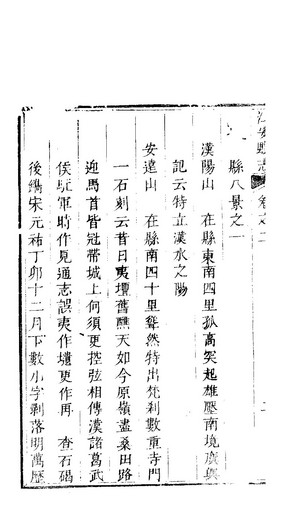 江安縣志 卷之二
縣八景之一
漢陽山 在縣東南四里孤高突起雄壓南境廣輿
記云特立漢水之陽
安遠山 在縣南四十里聳然特出梵刹數重寺門
一石刻云昔日夷壇舊醮天如今原嶺盡桑田路
迎馬首皆冠帶城上何須更控弦相傳漢諸葛武
侯駐軍時作見通志誤夷作壝更作再 查石碣
後鐫宋元祐丁卯十二月下數小字剥落明萬歷